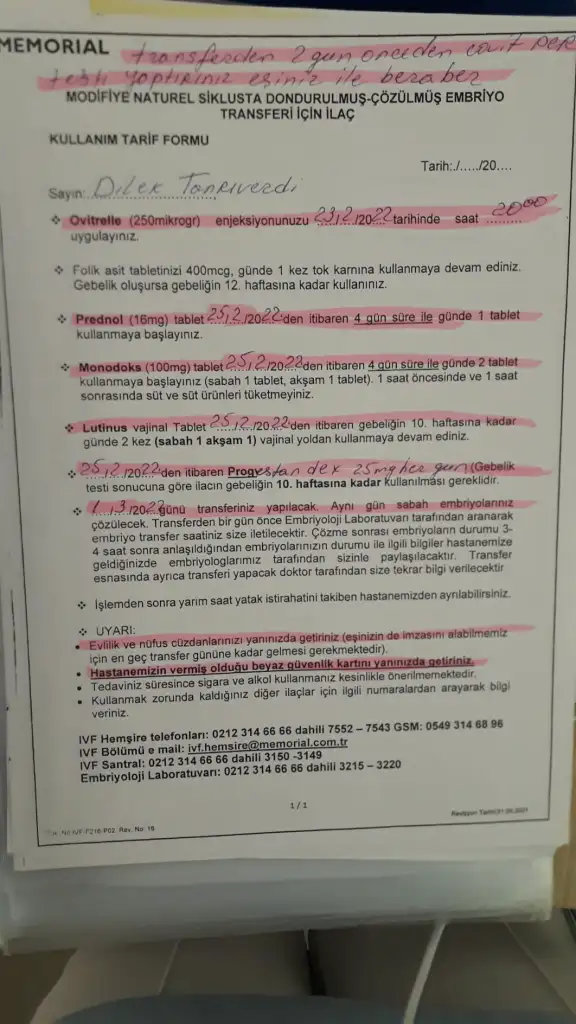 MEMORIAL transferden 2 gün önceden covit PCR
testi yaptırınız eşiniz ile beraber
MODİFİYE NATUREL SİKLUSTA DONDURULMUŞ-ÇÖZÜLMÜŞ EMBRİYO
TRANSFERİ İÇİN İLAÇ
KULLANIM TARİF FORMU
Tarih:./...../20....
Sayın: Dilek Tanrıverdi
❖ Ovitrelle (250mikrogr) enjeksiyonunuzu 23/2/2022 tarihinde saat 20:00
uygulayınız.
❖ Folik asit tabletinizi 400mcg, günde 1 kez tok karnına kullanmaya devam ediniz.
Gebelik oluşursa gebeliğin 12. haftasına kadar kullanınız.
❖ Prednol (16mg) tablet 25/2/2022'den itibaren 4 gün süre ile günde 1 tablet
kullanmaya başlayınız.
❖ Monodoks (100mg) tablet 25/2/2022den itibaren 4 gün süre ile günde 2 tablet
kullanmaya başlayınız (sabah 1 tablet, akşam 1 tablet). 1 saat öncesinde ve 1 saat
sonrasında süt ve süt ürünleri tüketmeyiniz.
❖ Lutinus vajinal Tablet 25/2/2022'den itibaren gebeliğin 10. haftasına kadar
günde 2 kez (sabah 1 akşam 1) vajinal yoldan kullanmaya devam ediniz.
❖ 25/2/2022'den itibaren Progestan dex 25mg her gün (Gebelik
testi sonucuna göre ilacın gebeliğin 10. haftasına kadar kullanılması gereklidir.
❖ 1/3/2022 günü transferiniz yapılacak. Aynı gün sabah embriyolarınız
çözülecek. Transferden bir gün önce Embriyoloji Laboratuvarı tarafından aranarak
embriyo transfer saatiniz size iletilecektir. Çözme sonrası embriyoların durumu 3-
4 saat sonra anlaşıldığından embriyolarınızın durumu ile ilgili bilgiler hastanemize
geldiğinizde embriyologlarımız tarafından sizinle paylaşılacaktır. Transfer
esnasında ayrıca transferi yapacak doktor tarafından size tekrar bilgi verilecektir
❖ İşlemden sonra yarım saat yatak istirahatini takiben hastanemizden ayrılabilirsiniz.
❖ UYARI:
• Evlilik ve nüfus cüzdanlarınızı yanınızda getiriniz (eşinizin de imzasını alabilmemiz
için en geç transfer gününe kadar gelmesi gerekmektedir).
• Hastanemizin vermiş olduğu beyaz güvenlik kartını yanınızda getiriniz.
• Tedaviniz süresince sigara ve alkol kullanmanız kesinlikle önerilmemektedir.
• Kullanmak zorunda kaldığınız diğer ilaçlar için ilgili numaralardan arayarak bilgi
veriniz.
IVF Hemşire telefonları: 0212 314 66 66 dahili 7552 – 7543 GSM: 0549 314 68 96
IVF Bölümü e mail: ivf.hemsire@memorial.com.tr
IVF Santral: 0212 314 66 66 dahili 3150 -3149
Embriyoloji Laboratuvarı: 0212 314 66 66 dahili 3215 – 3220
1/1
No:IVF-F216-P02 Rev. No: 10
Revizyon Tarihi: